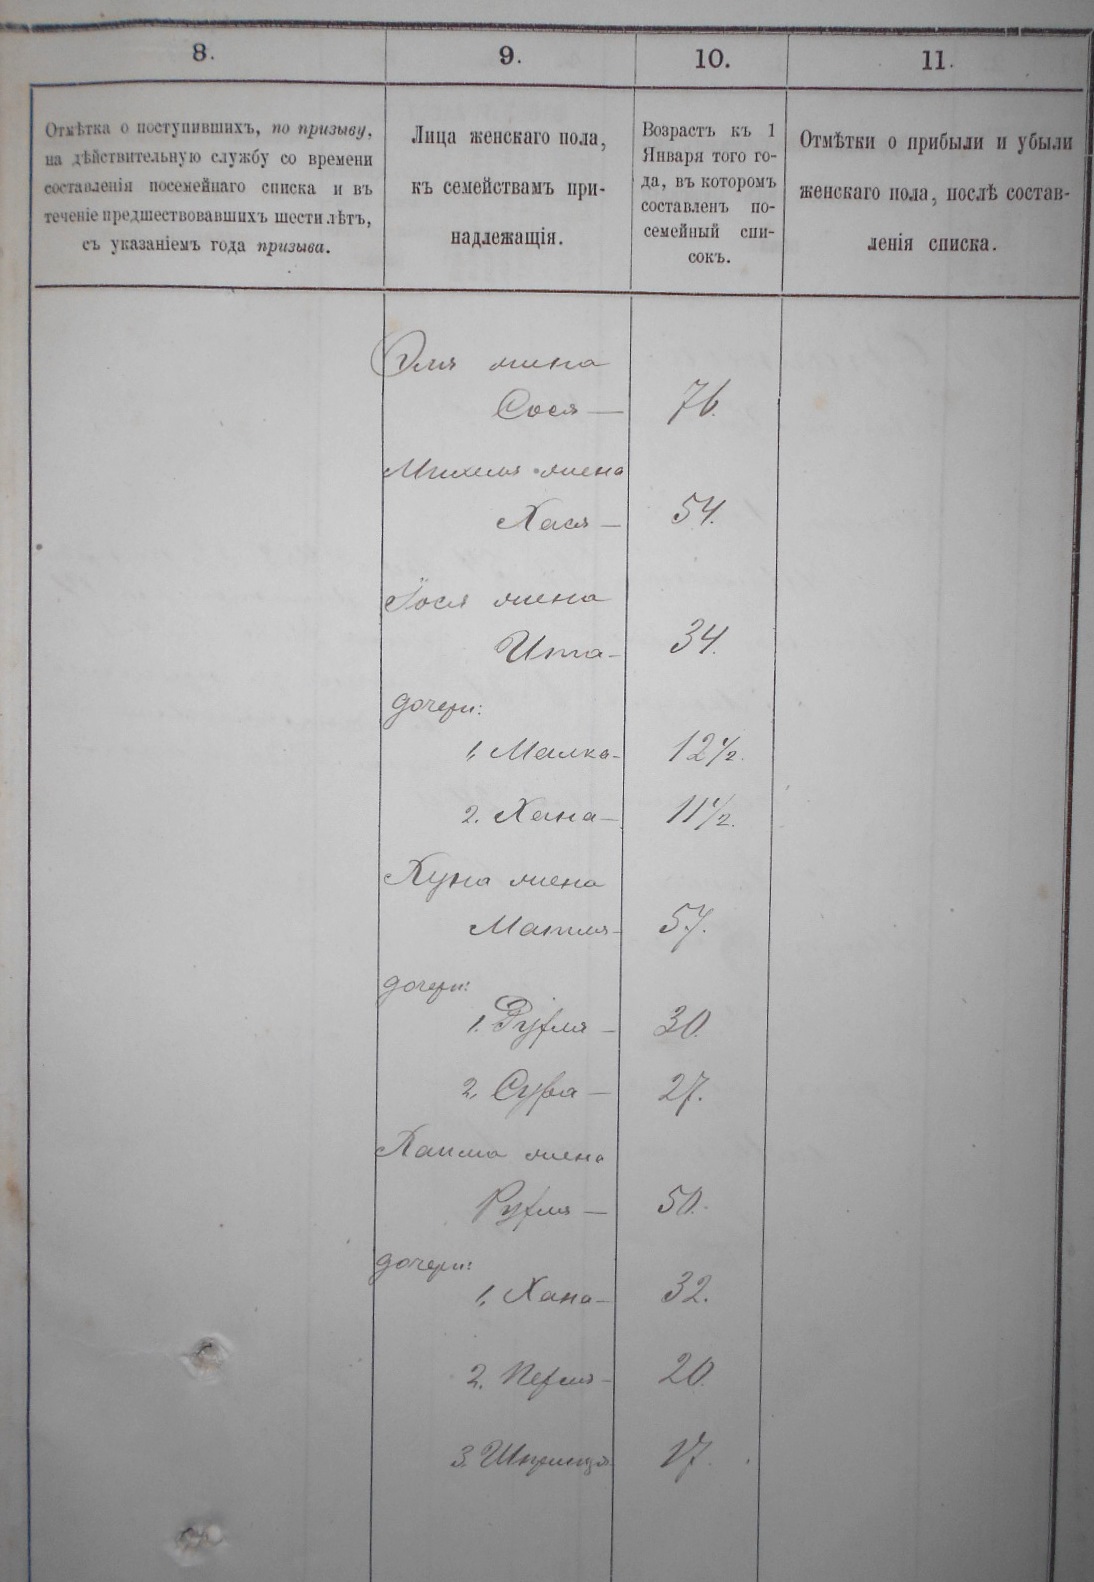 8.
9.
10.
11.
Отмѣтка о поступившихъ, по призыву,
на дѣйствительную службу со времени
составленія посемейнаго списка и въ
теченіе предшествовавшихъ шести лѣтъ,
съ указаніемъ года призыва.
Лица женскаго пола,
къ семействамъ при-
надлежащія.
Возрастъ къ 1
Января того го-
да, въ которомъ
составленъ по-
семейный спи-
сокъ.
Отмѣтки о прибыли и убыли
женскаго пола, послѣ состав-
ленія списка.
жена
Сося — 76.
Михеля жена
Хася — 54.
Іося жена
Ита — 34.
дочери:
1, Малка — 12 1/2.
2. Хана — 11 1/2.
Хуна жена
Матля — 57.
дочери:
1. Рухля — 30.
2, — 27.
Хаима жена
Рухля — 50.
дочери:
1, Хана — 32.
2. — 20.
3. Шпринца 17.